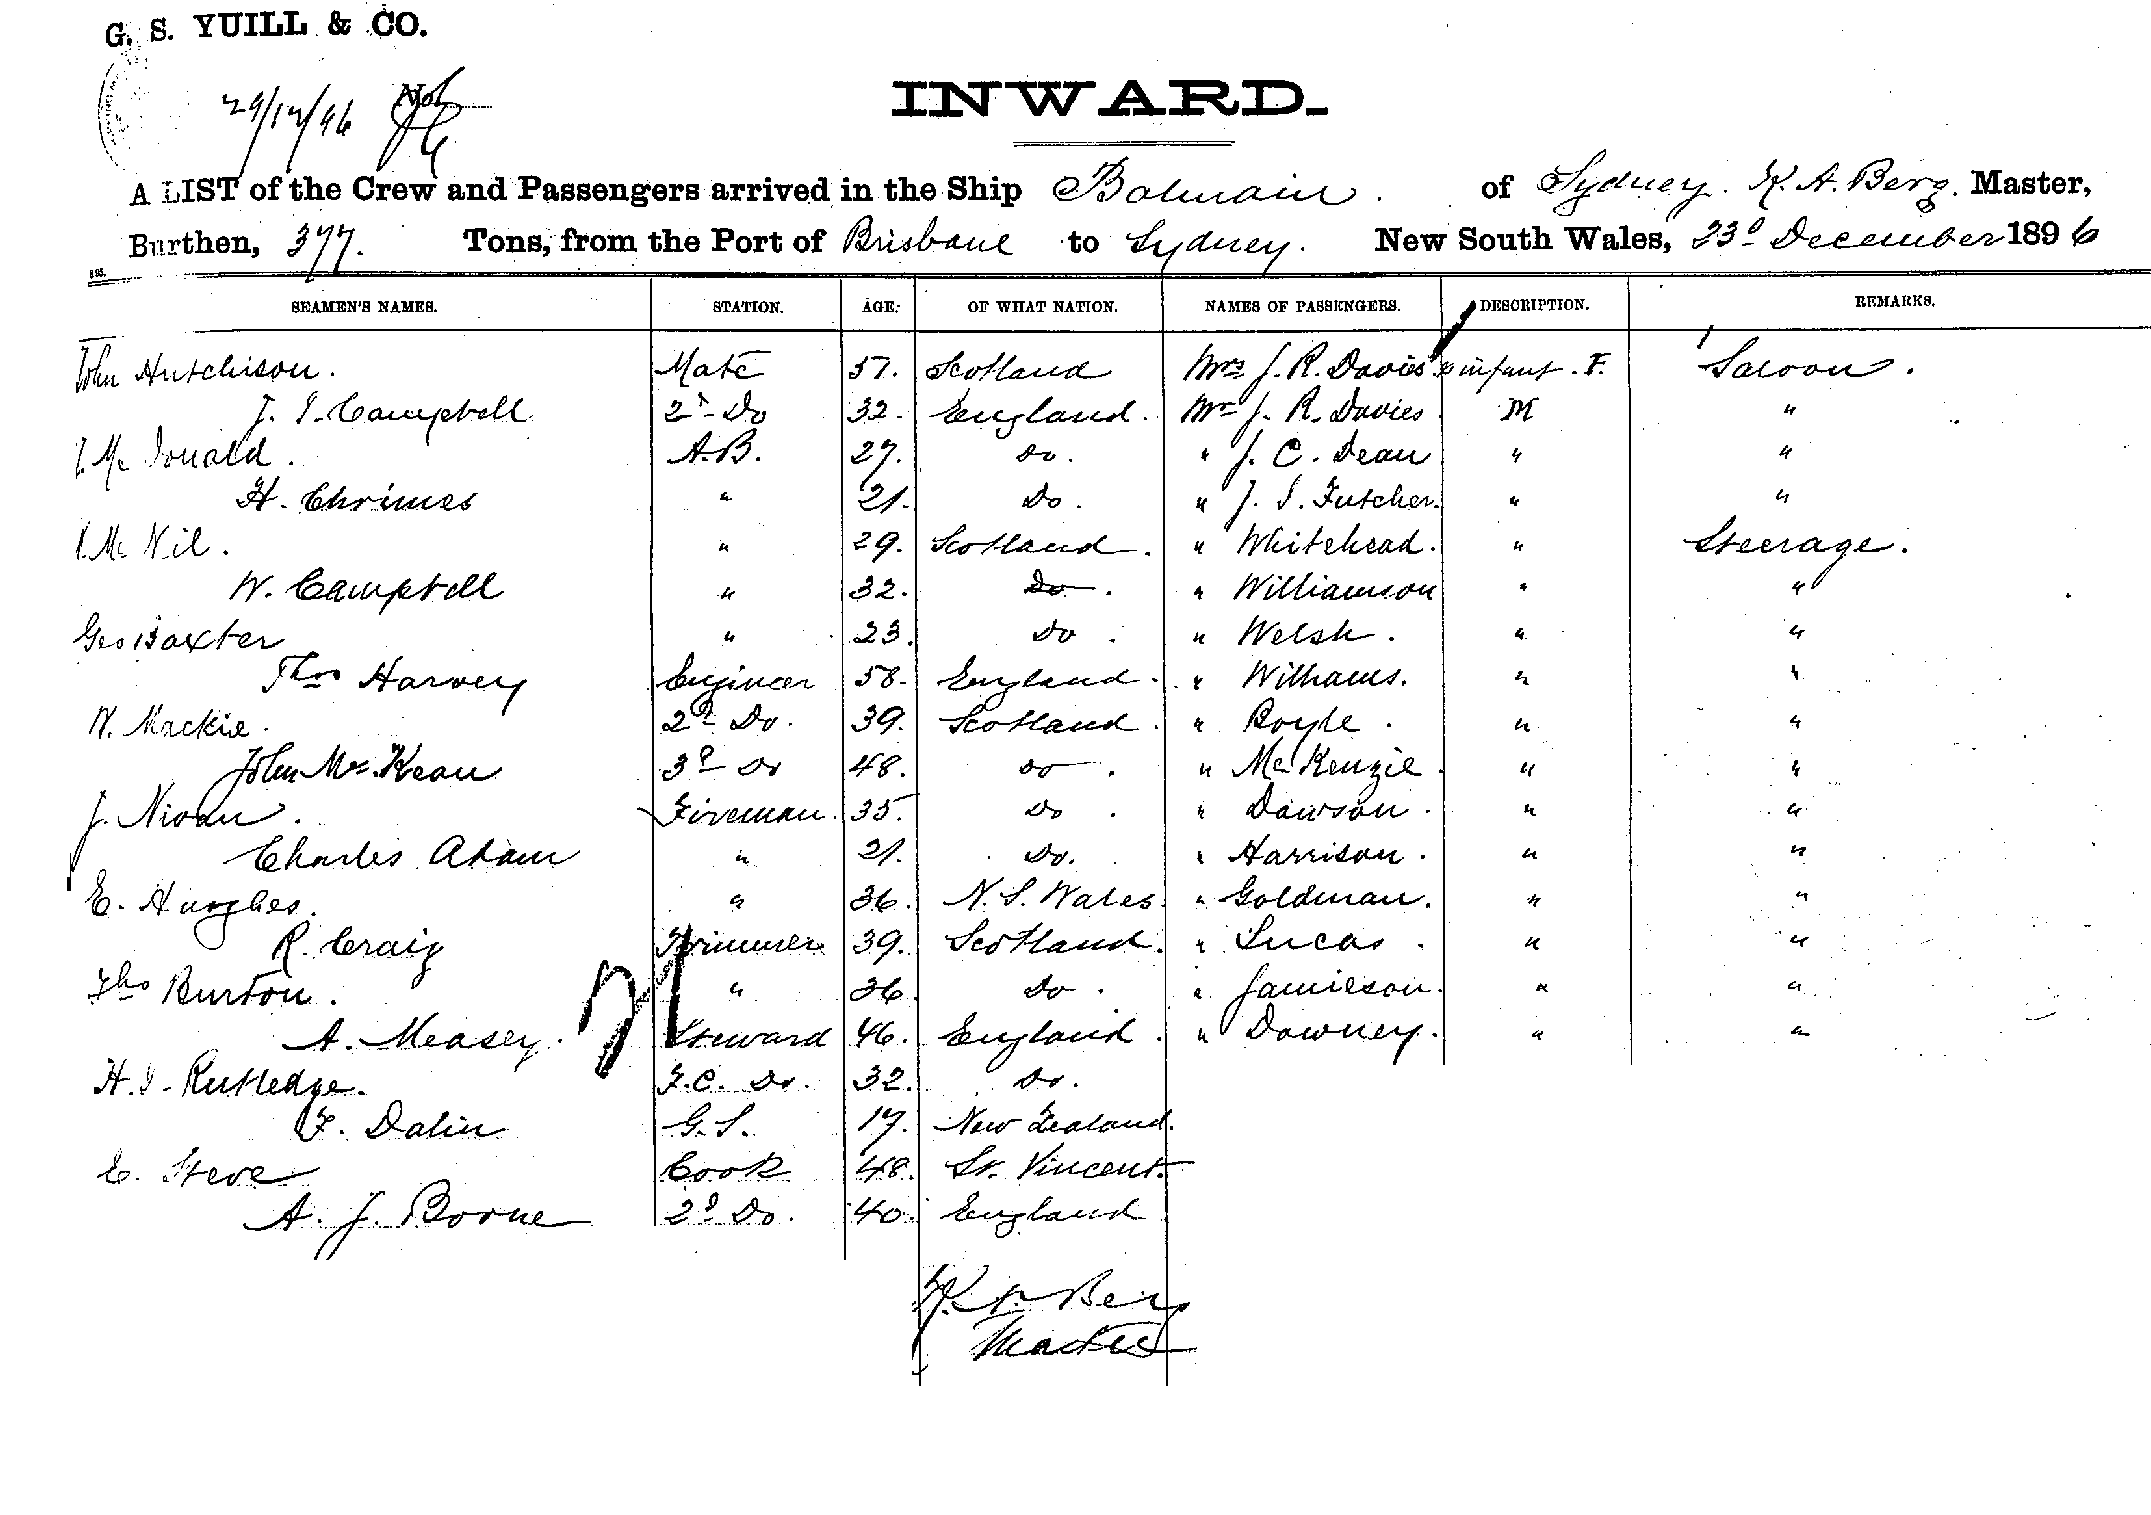 G. S. YUILL & CO.
29/12/96
INWARD.
A LIST of the Crew and Passengers arrived in the Ship Balmain. of Sydney. K. A. Berg. Master,
Burthen, 377. Tons, from the Port of Brisbane to Sydney. New South Wales, 23d December 1896
SEAMEN'S NAMES. STATION. AGE. OF WHAT NATION. NAMES OF PASSENGERS. DESCRIPTION. REMARKS.
John Hutchison. Mate 57. Scotland Mrs J. R. Davies & infant. F. Saloon.
J. S. Campbell 2d Do 32. England. Mr J. R. Davies M "
Mc Donald. A.B. 27. Do. " J. C. Dean " "
H. Chrimes " 21. Do. " J. S. Futcher. " "
Mc Nil. " 29. Scotland. " Whitehead. " Steerage.
W. Campbell " 32. Do. " Williamson " "
Geo Baxter " 23. Do. " Welsh. " "
Thos Harvey Engineer 58. England. " Williams. " "
W. Mackie. 2d Do. 39. Scotland. " Boyle. " "
John McKean 3d Do 48. Do. " McKenzie. " "
J. Niven. Fireman. 35. Do. " Dawson. " "
Charles Adam " 21. Do. " Harrison. " "
E. Hughes. " 36. N. S. Wales. " Goldman. " "
R. Craig Trimmer 39. Scotland. " Lucas. " "
Thos Burton. " 36. Do. " Jamieson. " "
A. Measey. Steward 46. England. " Downey. " "
H. S. Rutledge. F.C. Do. 32. Do.
F. Dalin G.S. 17. New Zealand.
E. Steve Cook 48. St. Vincent.
A. J. Borne 2d Do. 40. England
K A Berg
Master